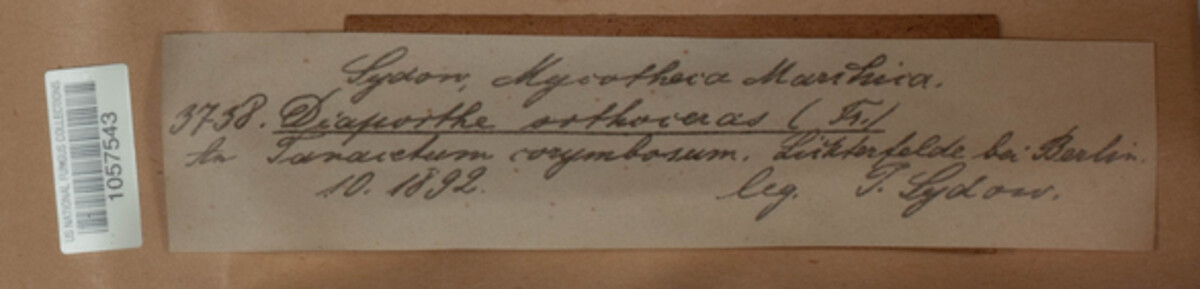 Sydow, Mycotheca Marchica.
3738. Diaporthe orthoceras (Fr.)
An Tanacetum corymbosum. Lichterfelde bei Berlin.
10. 1892. leg. P. Sydow.
US NATIONAL FUNGUS COLLECTIONS
1057543